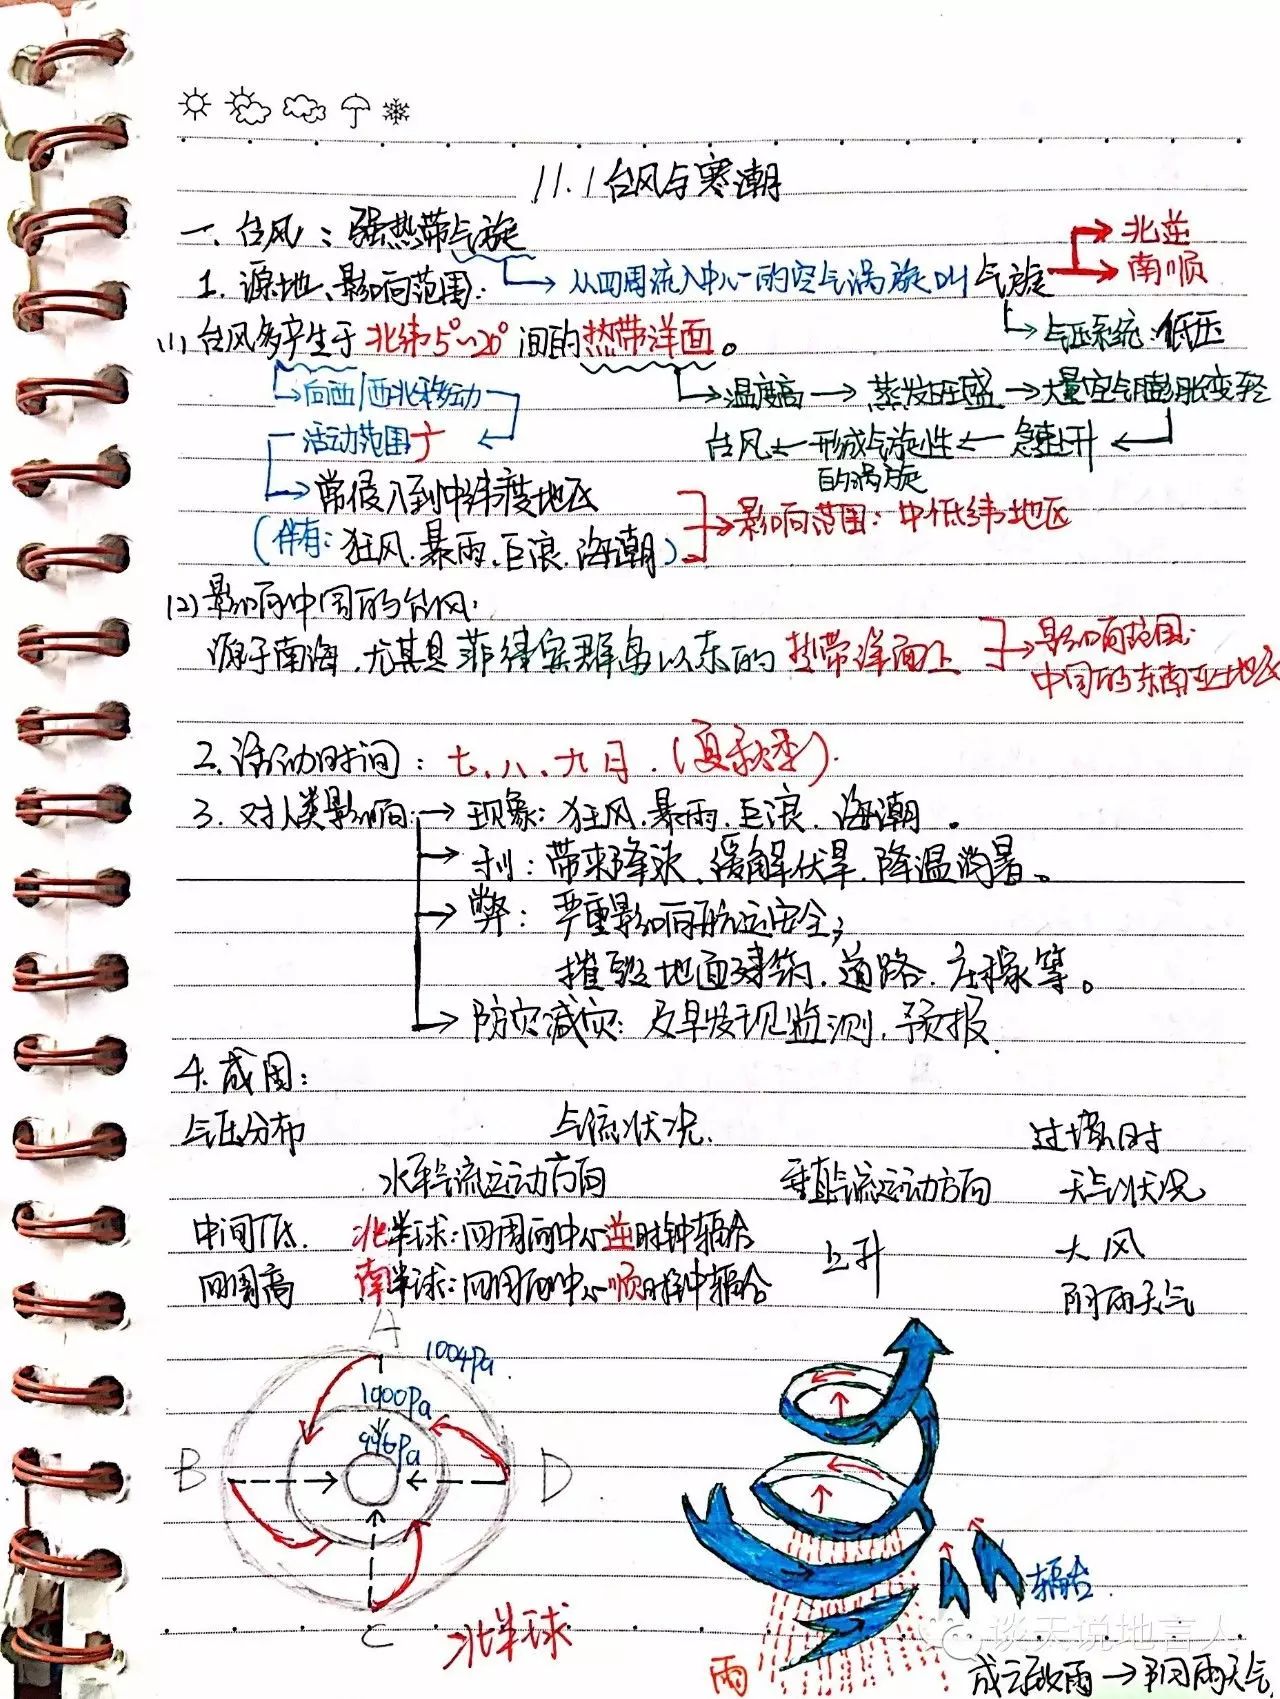 11.1台风与寒潮
一、台风：强热带气旋
北逆
1. 源地、影响范围： 从四周流入中心的空气涡旋叫气旋 南顺
(1) 台风多产生于北纬5°~20°间的热带洋面。 气压系统：低压
向西/西北移动 温度高→蒸发旺盛→大量空气膨胀变轻
活动范围 台风←形成气旋性←急速上升
的涡旋
常侵入到中纬度地区
(伴有：狂风、暴雨、巨浪、海潮) 影响范围：中低纬地区
(2) 影响中国的台风：
源于南海、尤其是菲律宾群岛以东的热带洋面上 影响范围：
中国的东南亚地区
2. 活动时间：七、八、九月.(夏秋季).
3. 对人类影响：→现象：狂风、暴雨、巨浪、海潮。
→利：带来降水、缓解伏旱、降温消暑。
→弊：严重影响航运安全；
摧毁地面建筑、道路、庄稼等。
→防灾减灾：及早发现监测、预报.
4. 成因：
气压分布 气流状况. 过境时
水平气流运动方向 垂直气流运动方向 天气状况
中间低. 北半球：四周向中心逆时钟辐合 上升 大风
四周高 南半球：四周向中心顺时钟辐合 阴雨天气
A
1004Pa.
1000Pa
996Pa
B D
辐合
C
北半球
谈天说地言人
雨 成云致雨→阴雨天气